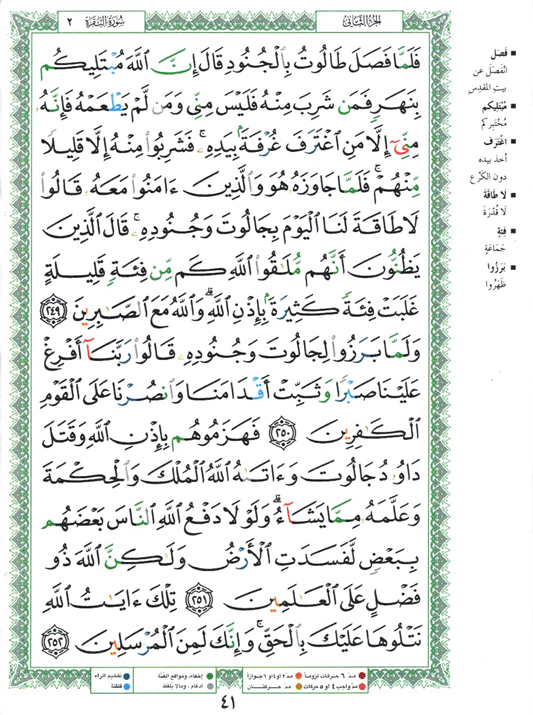 الجزء الثاني
سورة البقرة ٢
فَلَمَّا فَصَلَ طَالُوتُ بِالْجُنُودِ قَالَ إِنَّ اللَّهَ مُبْتَلِيكُم
بِنَهَرٍ فَمَن شَرِبَ مِنْهُ فَلَيْسَ مِنِّي وَمَن لَّمْ يَطْعَمْهُ فَإِنَّهُ
مِنِّي إِلَّا مَنِ اغْتَرَفَ غُرْفَةً بِيَدِهِ ۚ فَشَرِبُوا مِنْهُ إِلَّا قَلِيلًا
مِّنْهُمْ ۚ فَلَمَّا جَاوَزَهُ هُوَ وَالَّذِينَ ءَامَنُوا مَعَهُ قَالُوا
لَا طَاقَةَ لَنَا الْيَوْمَ بِجَالُوتَ وَجُنُودِهِ ۚ قَالَ الَّذِينَ
يَظُنُّونَ أَنَّهُم مُّلَٰقُوا اللَّهِ كَم مِّن فِئَةٍ قَلِيلَةٍ
غَلَبَتْ فِئَةً كَثِيرَةً بِإِذْنِ اللَّهِ ۗ وَاللَّهُ مَعَ الصَّٰبِرِينَ ٢٤٩
وَلَمَّا بَرَزُوا لِجَالُوتَ وَجُنُودِهِ قَالُوا رَبَّنَا أَفْرِغْ
عَلَيْنَا صَبْرًا وَثَبِّتْ أَقْدَامَنَا وَانصُرْنَا عَلَى الْقَوْمِ
الْكَٰفِرِينَ ٢٥٠ فَهَزَمُوهُم بِإِذْنِ اللَّهِ وَقَتَلَ
دَاوُدُ جَالُوتَ وَءَاتَىٰهُ اللَّهُ الْمُلْكَ وَالْحِكْمَةَ
وَعَلَّمَهُ مِمَّا يَشَاءُ ۗ وَلَوْلَا دَفْعُ اللَّهِ النَّاسَ بَعْضَهُم
بِبَعْضٍ لَّفَسَدَتِ الْأَرْضُ وَلَٰكِنَّ اللَّهَ ذُو
فَضْلٍ عَلَى الْعَٰلَمِينَ ٢٥١ تِلْكَ ءَايَٰتُ اللَّهِ
نَتْلُوهَا عَلَيْكَ بِالْحَقِّ ۚ وَإِنَّكَ لَمِنَ الْمُرْسَلِينَ ٢٥٢
فَصَلَ
انْفَصَلَ عن
بيتِ المَقْدِسِ
مُبْتَلِيكم
مُخْتَبِرُكم
اغْتَرَفَ
أخذ بيده
دون الكَرْعِ
لا طَاقَةَ
لا قُدْرَةَ
فِئَةٍ
جَمَاعَةٍ
بَرَزُوا
ظَهَرُوا
مدّ ٦ حركات لزوماً
مدّ ٢ أو ٤ أو ٦ جوازاً
إخفاء، ومواقع الغنّة
تفخيم الراء
مدّ واجب ٤ أو ٥ حركات
مدّ حركتان
ادغام، وما لا يُلفظ
قلقلة
٤١